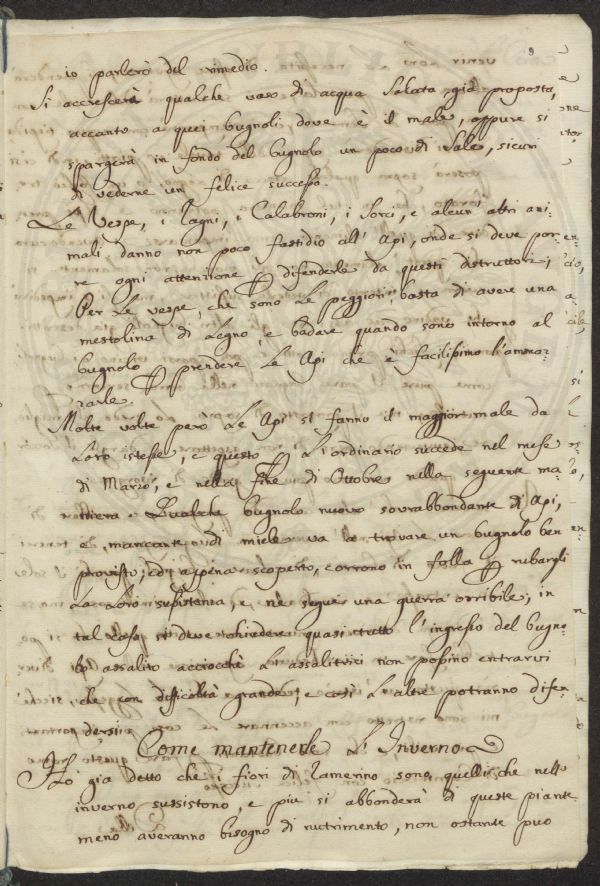 9
io parlerò del rimedio.
Si accrescerà qualche vaso di acqua Salata già proposta,
accanto a quei bugnoli dove è il male, oppure si
spargerà in fondo del bugnolo un poco di Sale, sicuri
di vederne un felice successo.
Le Vespe, i Ragni, i Calabroni, i Sorci, e alcun' altri ani-
mali danno non poco fastidio all' Api, onde si deve por-
re ogni attenzione ꝑ difenderle da questi distruttori;
Per le vespe, che sono le peggiori basta di avere una
mestolina di Legno, e badare quando sono intorno al
bugnolo ꝑ prendere le Api che è facilissimo l'ammaz-
zarle.
Molte volte però le Api si fanno il maggior male da
Loro istesse, e questo ꝑ l'ordinario succede nel mese
di Marzo, e nella fine di Ottobre nella seguente ma-
niera. Qualche bugnolo nuovo sovrabbondante di Api,
e mancante di miele va a trovare un bugnolo ben
provisto, ed appena scoperto, corrono in folla ꝑ rubargli
la loro sustanza, e ne segue una guerra orribile, in
tal caso si deve chiedere quasi tutto l'ingresso del bugno-
lo assalito acciocchè l'assalitrici non possino entrarvi
che con difficoltà grande, e così l'altre potranno difen-
dersi.
Come mantenerle l'Inverno
Ho già detto che i fiori di Ramerino sono quelli che nell'
inverno sussistono, e più si abbonderà di queste piante
meno averanno bisogno di nutrimento, non ostante può